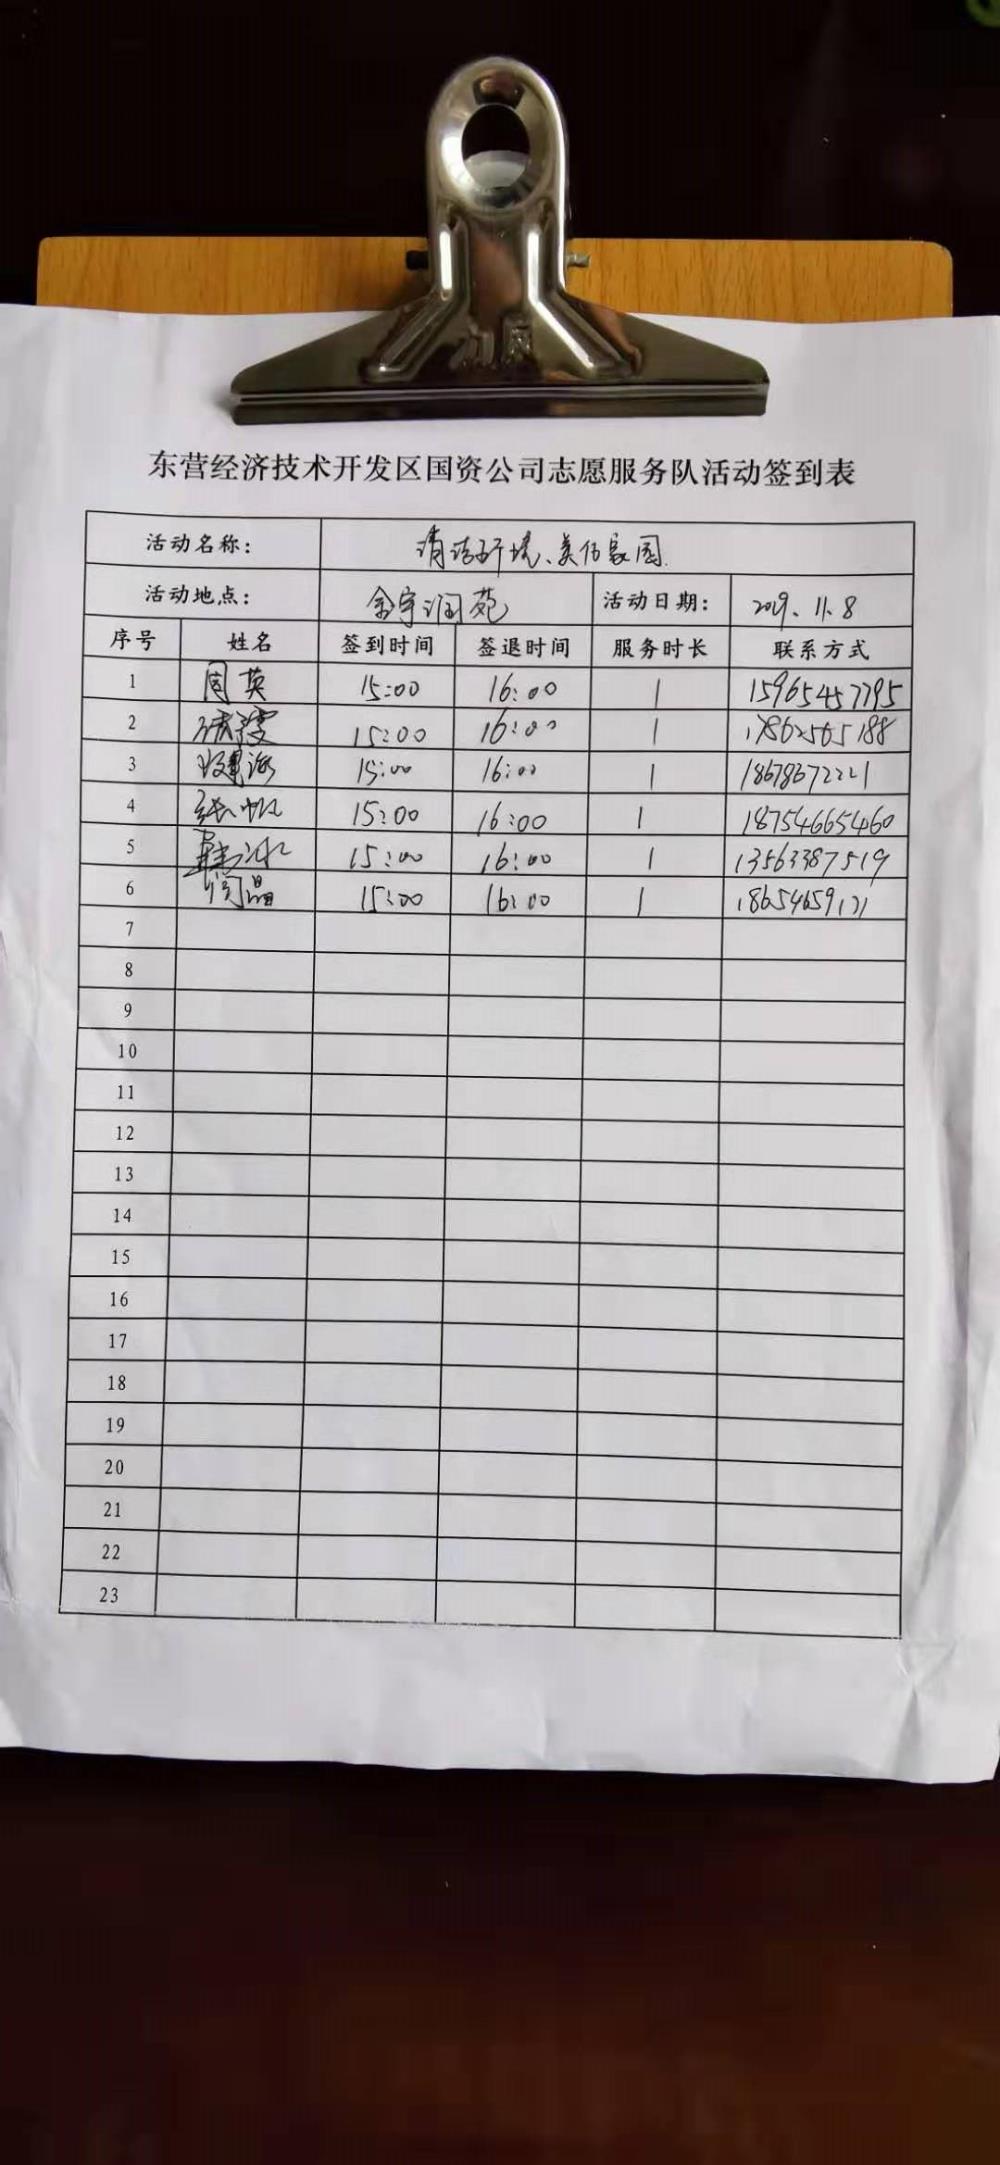 东营经济技术开发区国资公司志愿服务队活动签到表
活动名称： 清洁环境、美化家园.
活动地点： 金宇润苑 活动日期： 2019.11.8
序号 姓名 签到时间 签退时间 服务时长 联系方式
1 周英 15:00 16:00 1 15965457795
2 15:00 16:00 1 17862565188
3 15:00 16:00 1 18678672221
4 张帆 15:00 16:00 1 18754665460
5 15:00 16:00 1 13563387519
6 闫晶 15:00 16:00 1 18654659171
7
8
9
10
11
12
13
14
15
16
17
18
19
20
21
22
23